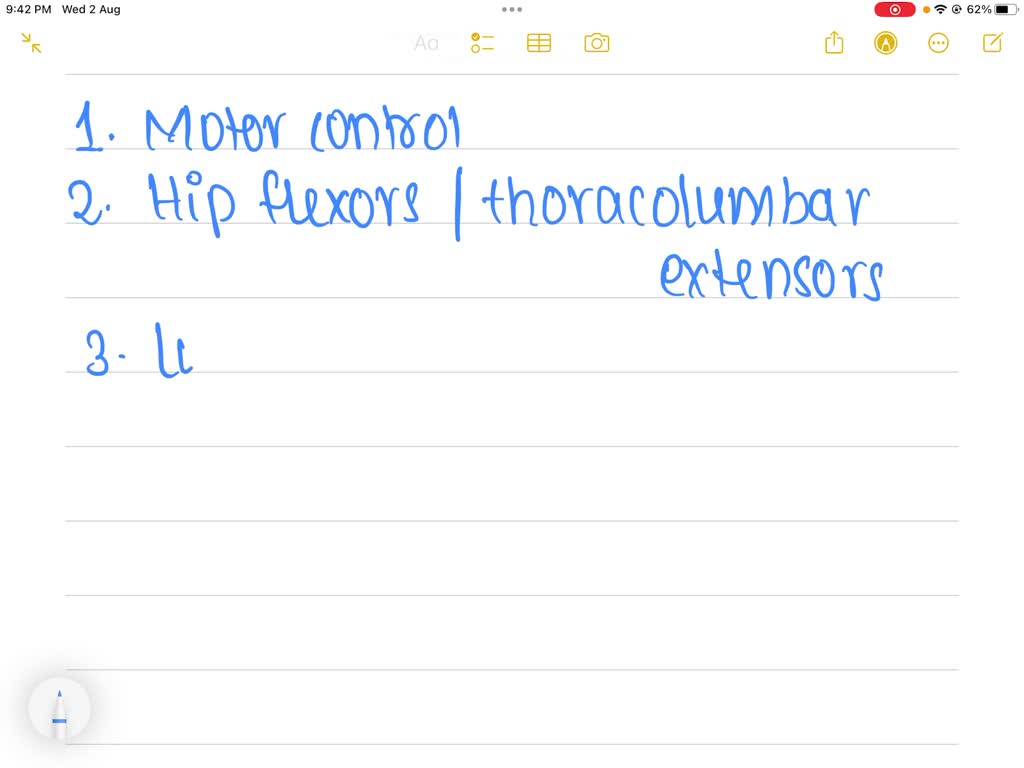 9:42 PM Wed 2 Aug
62%
Aa
1. Motor control
2. Hip flexors / thoracolumbar
extensors
3.